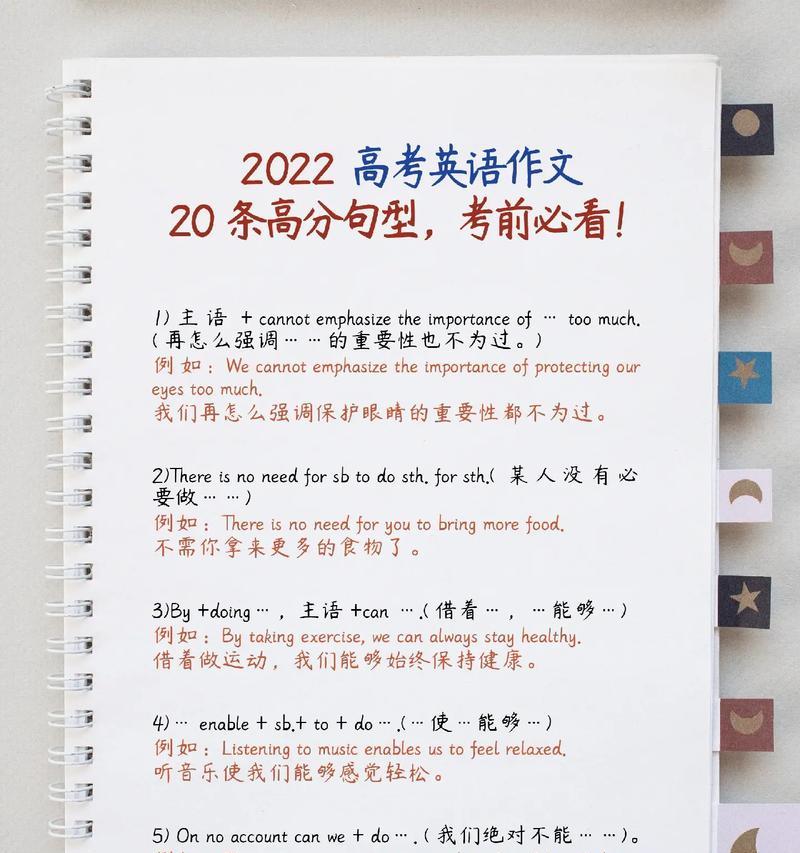 2022 高考英语作文
20 条高分句型，考前必看！
1) 主 语 + cannot emphasize the importance of … too much.
( 再怎么强调… …的重要性也不为过。)
例 如：We cannot emphasize the importance of protecting our
eyes too much.
我们再怎么强调保护眼睛的重要性都不为过。
2)There is no need for sb to do sth. for sth.( 某 人 没 有 必
要做… …)
例如：There is no need for you to bring more food.
不需你拿来更多的食物了。
3)By +doing… ，主语 +can ….( 借着… ，…能够…)
例如：By taking exercise, we can always stay healthy.
借着做运动，我们能够始终保持健康。
4)… enable + sb.+ to + do ….(… 使…能够…)
例如：Listening to music enables us to feel relaxed.
听音乐使我们能够感觉轻松。
5) On no account can we + do…. ( 我们绝对不能… …)。